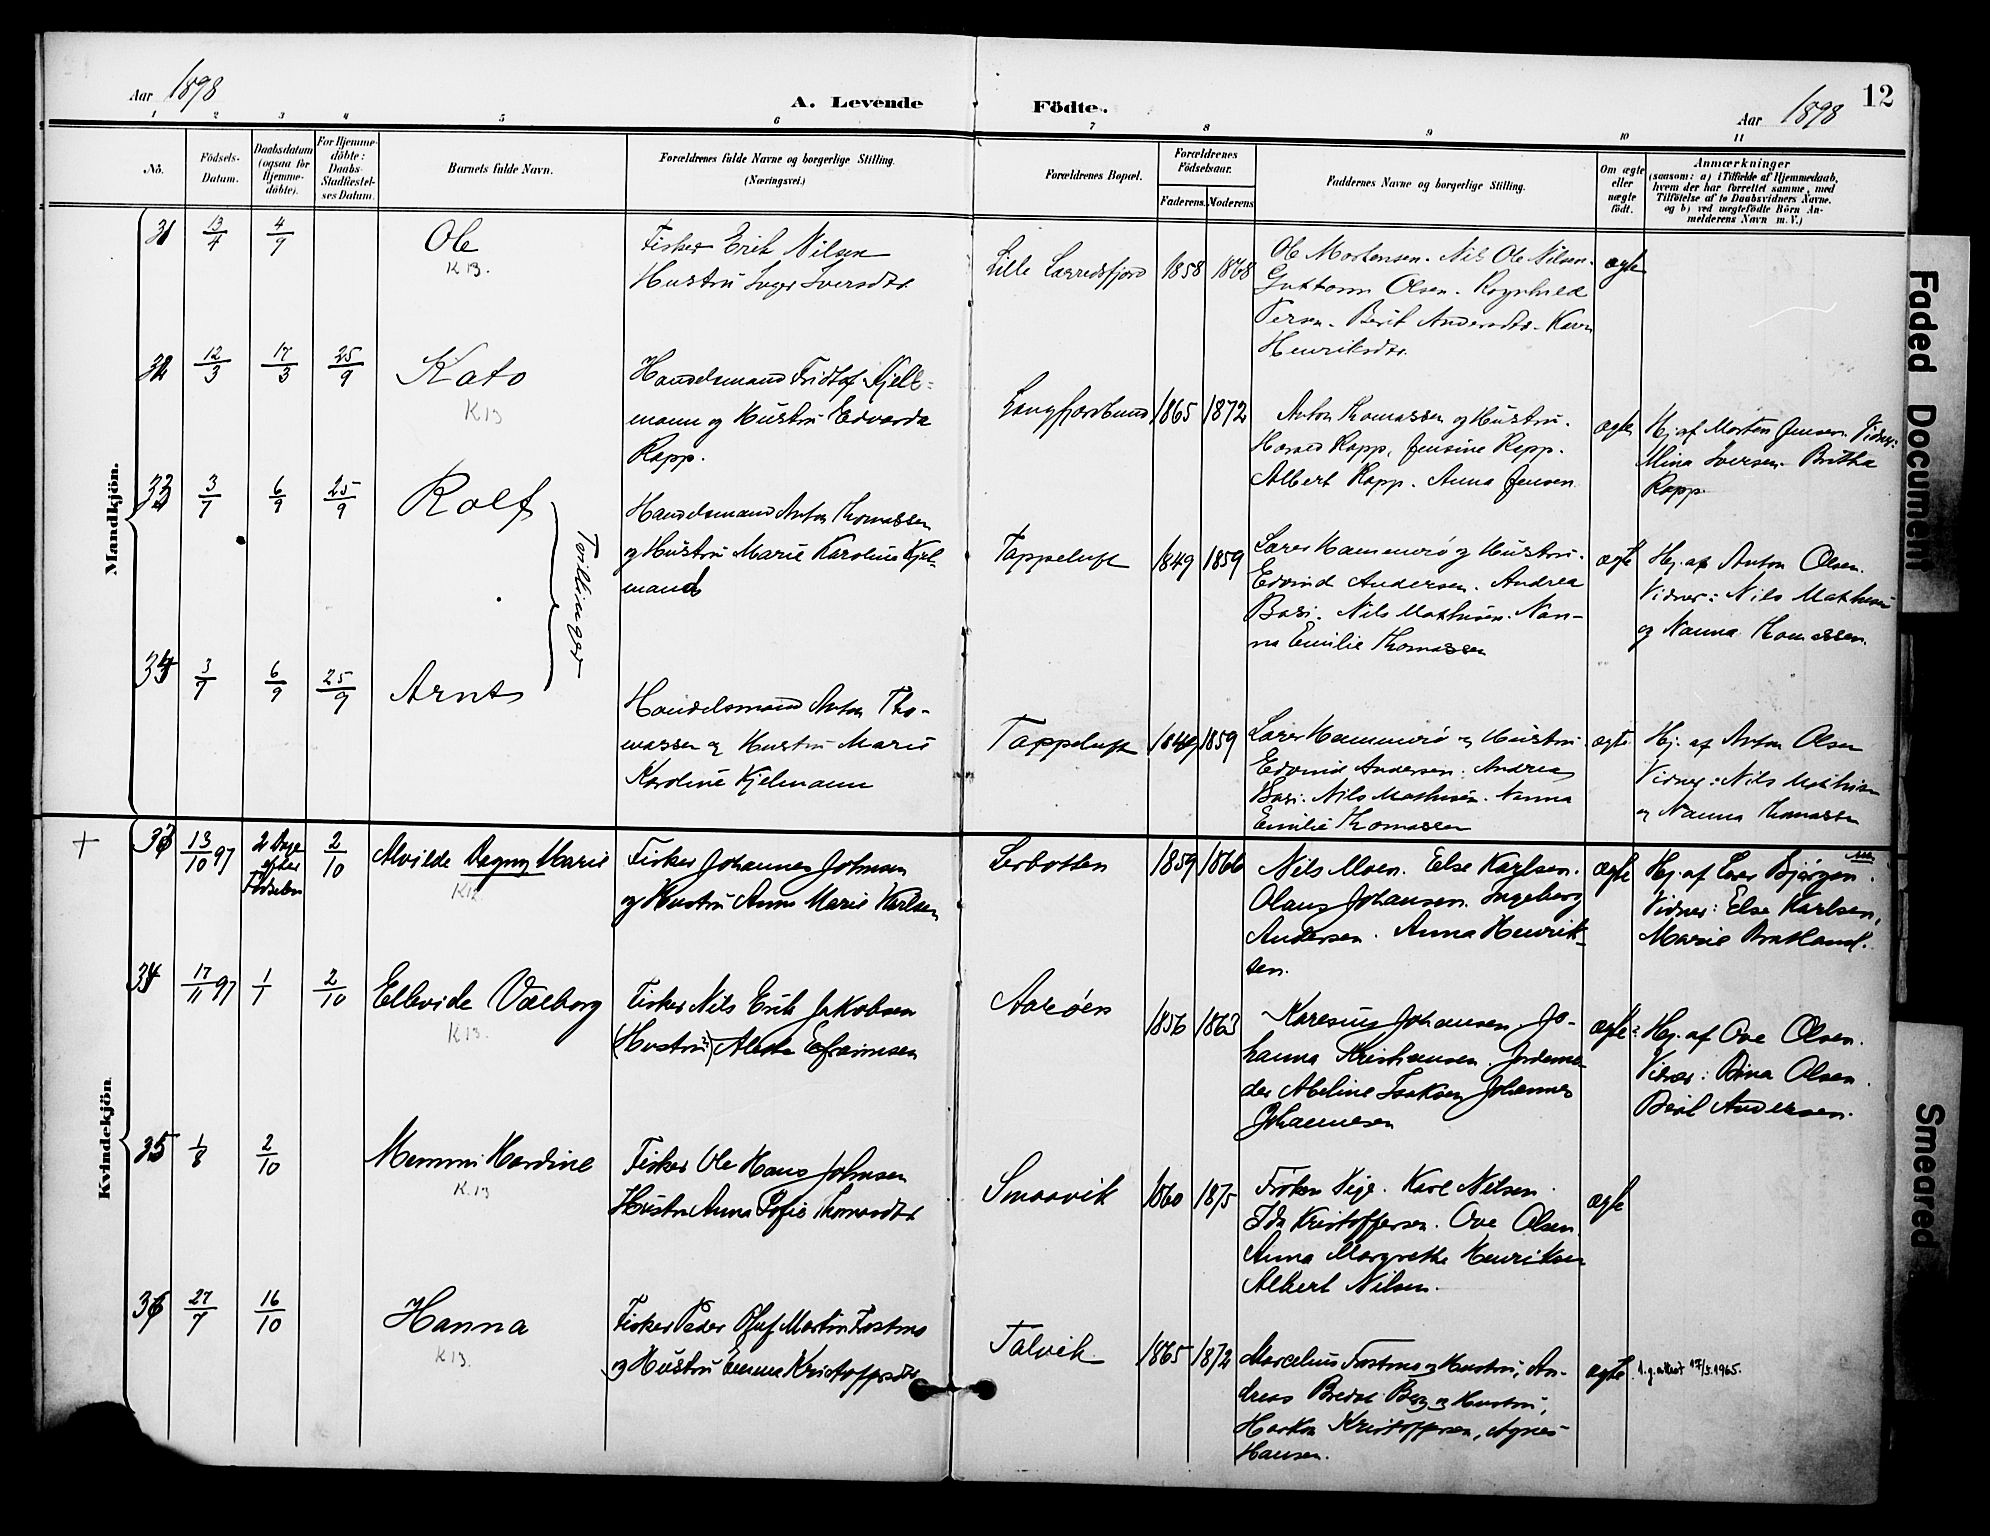 Aar 1898
A. Levende Födte.
Aar 1898
12
1 2 3 4 5 6 7 8 9 10 11
No.
Födsels-Datum.
Daabsdatum (ogsaa for Hjemme-döbte).
For Hjemme-döbte: Daabs-Stadfæstel-ses Datum.
Barnets fulde Navn.
Forældrenes fulde Navne og borgerlige Stilling.
(Næringsvei.)
Forældrenes Bopæl.
Forældrenes Födselsaar.
Faderens. Moderens.
Faddernes Navne og borgerlige Stilling.
Om ægte eller uægte födt.
Anmærkninger
(saasom: a) i Tilfælde af Hjemmedaab,
hvem der har forrettet samme, med
Tilföielse af to Daabsvidners Navne.
og b) ved uægtefödte Börn An-
melderens Navn m. V.)
Mandkjön.
31 13/4 4/9 Ole
K 13.
Fisker Erik Nilsen
Hustru Inger Iversdtr
Lille Lerredsfjord 1858 1868
Ole Mortensen. Nils Ole Nilsen.
Guttorm Olsen. Ragnhild
Persen. Berit Andersdtr. Karen
Henriksdtr.
ægte
32 12/3 17/3 25/9 Kato
K 13
Handelsmand Fridtjof Kjell-
mann og Hustru Edvarda
Rapp.
Langfjordbund 1865 1872
Anton Thomassen og Hustru.
Harald Rapp. Jensine Rapp.
Albert Rapp. Anna Jensen
ægte
Hj. af Morten Jensen. Vidner:
Mina Iversen. Britha
Rapp
33 3/7 6/9 25/9 Rolf
Tvillinger
Handelsmand Anton Thomassen
og Hustru Marie Karoline Kjel-
mann
Tappeluft 1849 1859
Lærer Hammerö og Hustru.
Edvind Andersen. Andrea
Basi. Nils Mathisen. Nan-
na Emilie Thomassen
ægte
Hj. af Anton Olsen.
Vidner: Nils Mathisen
og Nanna Thomassen.
34 3/7 6/9 25/9 Arnt
Handelsmand Anton Tho-
massen og Hustru Marie
Karoline Kjelmann
Tappeluft 1849 1859
Lærer Hammerö og Hustru.
Edvind Andersen. Andrea
Basi. Nils Mathisen. Nanna
Emilie Thomassen
ægte
Hj. af Anton Olsen
Vidner: Nils Mathisen
og Nanna Thomassen
Kvindekjön.
+ 33 13/10 97 2 Dage efter Fødselen 2/10 Alvilde Dagny Marie
K12
Fisker Johannes Johnsen
og Hustru Anne Marie Karlsen
Lerbotten 1859 1866
Nils Moen. Else Karlsen.
Olaus Johansen. Ingeborg
Andersen. Anna Henrik-
sen.
ægte
Hj. af Lærer Bjørgen.
Vidner: Else Karlsen,
Marie Bratland.
34 17/11 97 1/1 2/10 Ellevide Valborg
K 13.
Fisker Nils Erik Jakobsen
(Hustru) Efraimsen
Aarøen 1856 1863
Karesius Johansen. Jo-
hanna Kristiansen. Jordemo-
der Meline Isaksen. Johannes
Johannesen
ægte
Hj. af Ove Olsen.
Vidner: Olsen.
Berit Andersen.
35 1/8 2/10 Memmi Hardine
K.13
Fisker Ole Hans Johnsen
Hustru Anna Sofie Thomasdtr
Smaavik 1860 1875
Frøken Vige. Karl Nilsen.
Ida Kristoffersen. Ove Olsen
Anna Margrethe Henriksen
Albert Nilsen.
ægte
36 27/7 16/10 Hanna
K 13.
Fisker Peder Oluf Martin
og Hustru Emma Kristoffersdtr
Talvik 1865 1872
Marcelius og Hustru, An-
dreas Bredal Berg og Hustru,
Haakon Kristoffersen, Agnes
Hansen.
ægte
1. g. attest 17/5 1965.
Faded Document
Smeared